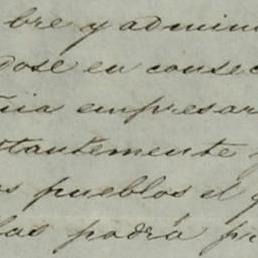 bre y admin
dose en consec
ñia empresar
stantemente
os pueblos el
las podrá pr